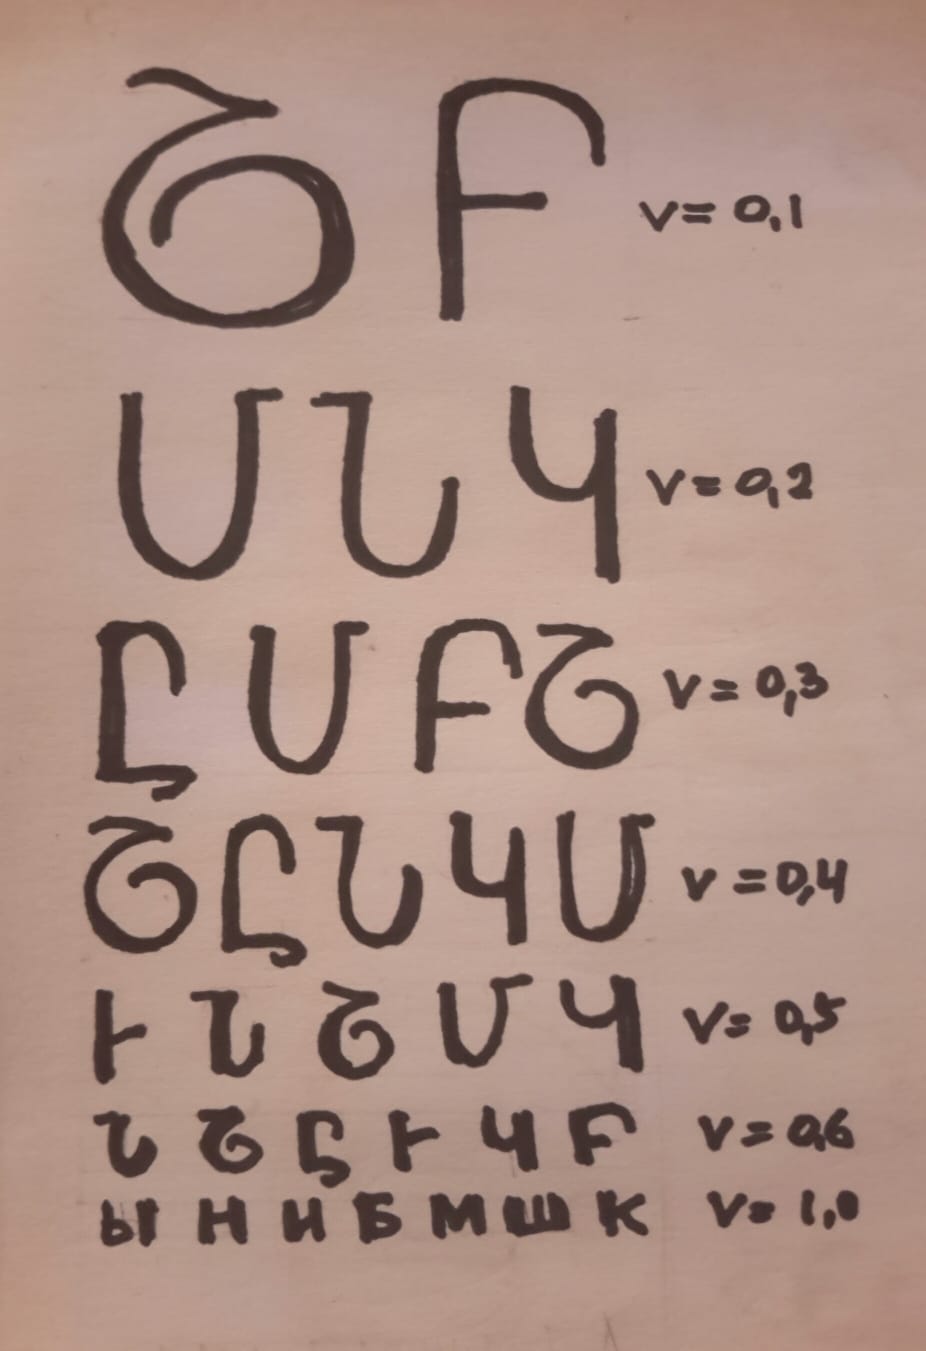 Շ Բ V= 0,1
Մ Ն Կ V= 0,2
Ը Մ Բ Շ V= 0,3
Շ Ը Ն Կ Մ V= 0,4
Ւ Ն Շ Մ Կ V= 0,5
Ն Շ Ը Ւ Կ Բ V= 0,6
Ы Н И Б М Ш К V= 1,0